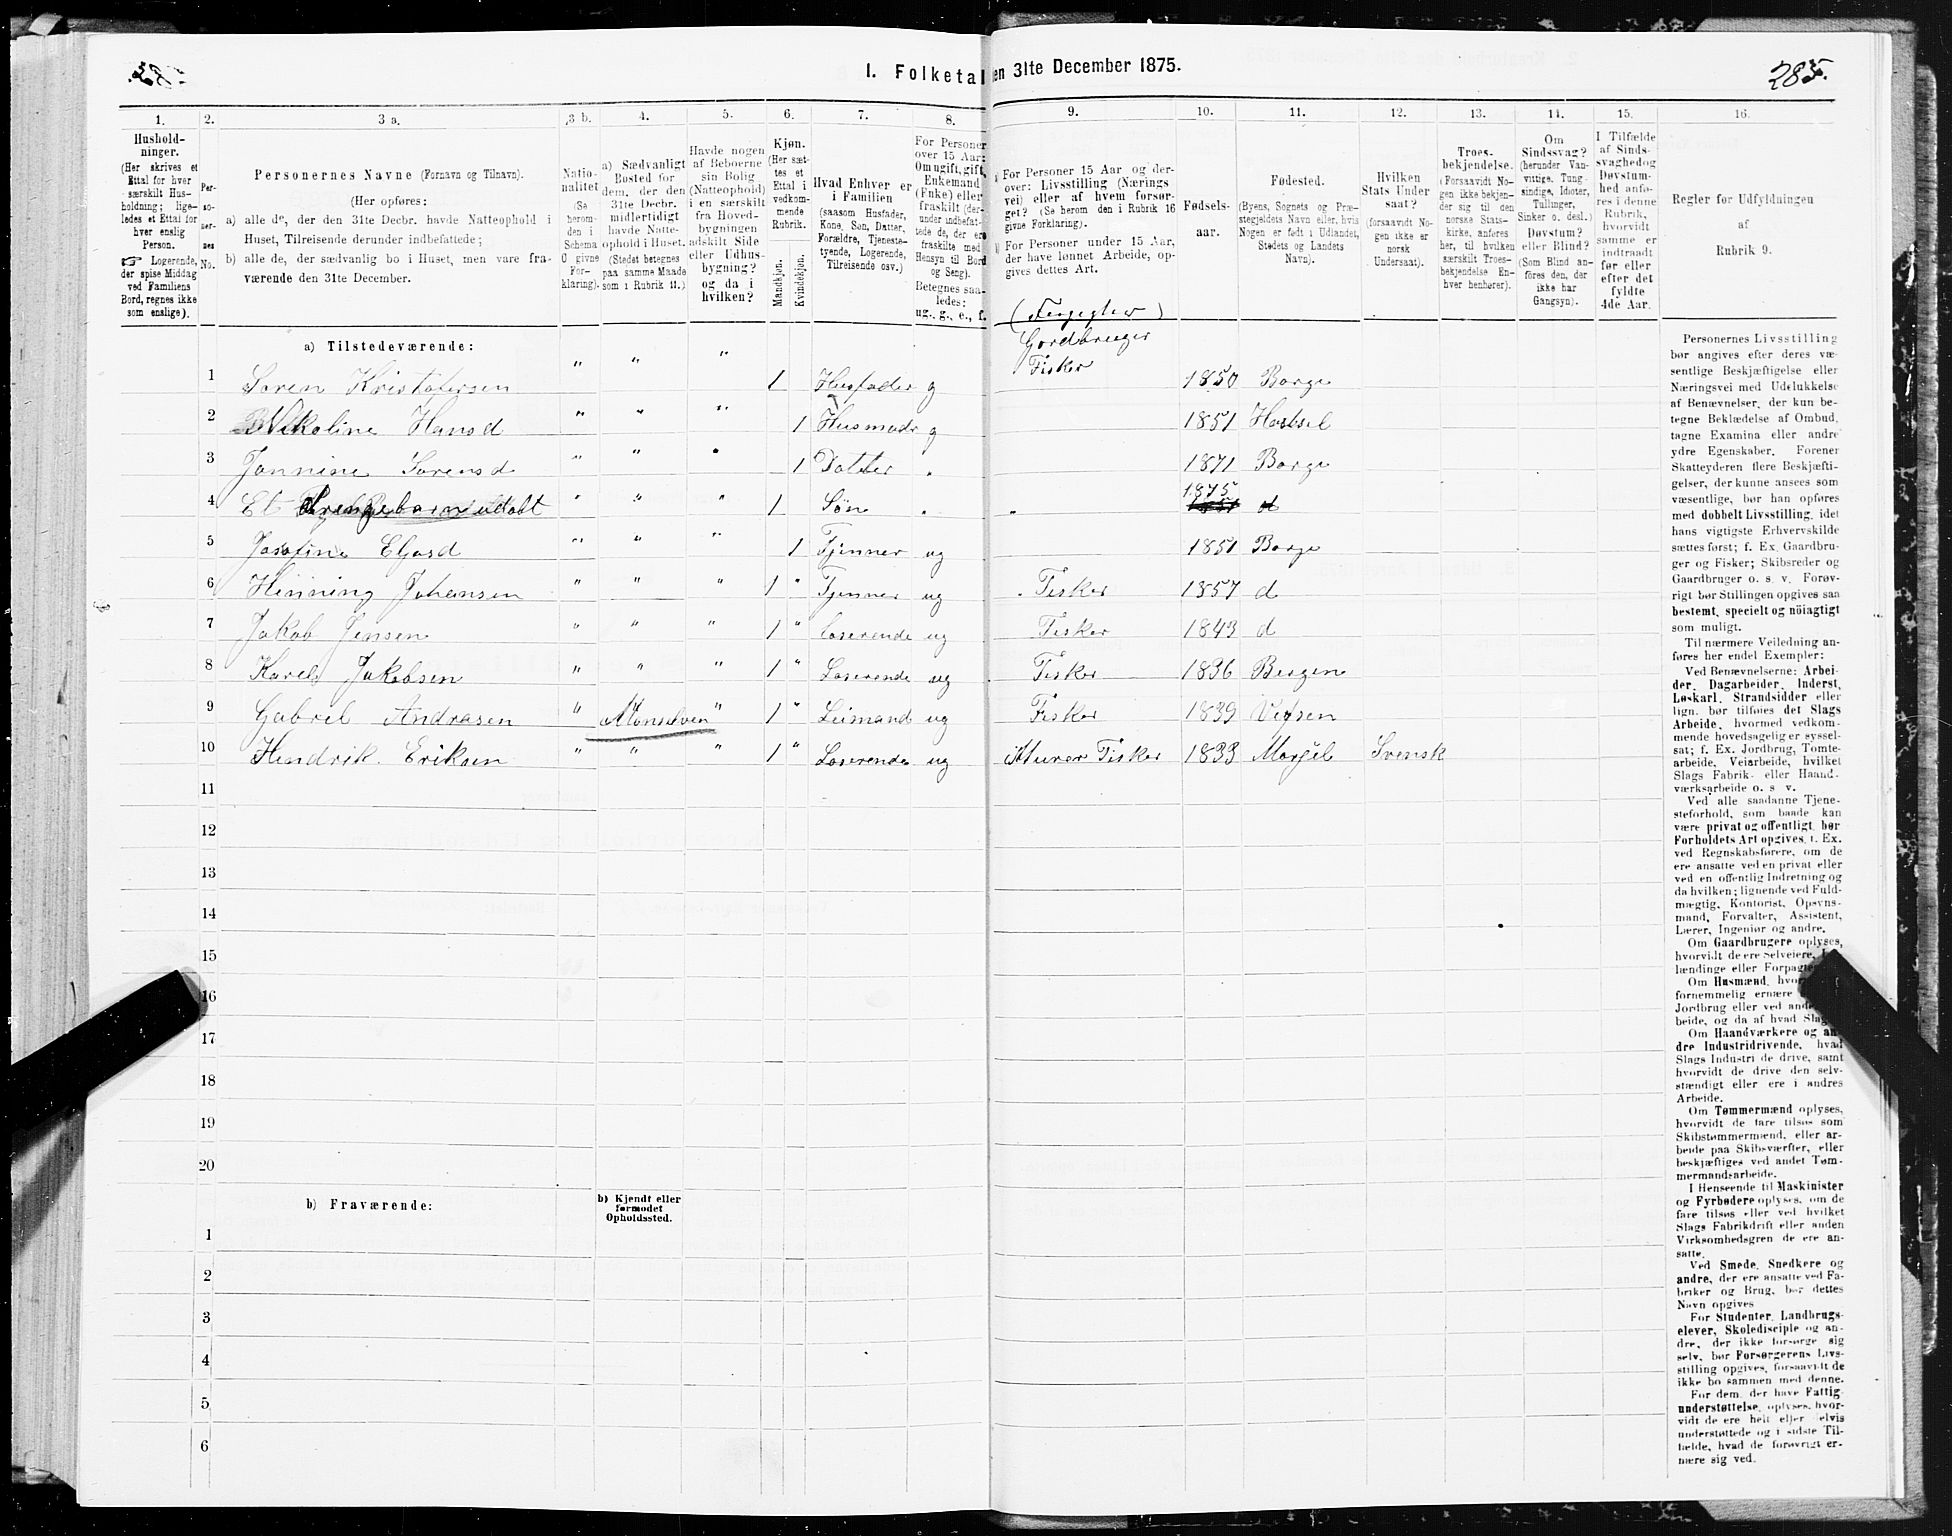 285.
I. Folketal
en 31te December 1875.
1. 2. 3 a. 3 b. 4. 5. 6. 7. 8. 9. 10. 11. 12. 13. 14. 15. 16.
Hushold-
ninger.
(Her skrives et
Ettal for hver
særskilt Hus-
holdning; lige-
ledes et Ettal for
hver enslig
Person.
☞ Logerende,
der spise Middag
ved Familiens
Bord, regnes ikke
som enslige).
Per-
so-
ner-
nes
No.
Personernes Navne (Fornavn og Tilnavn).
(Her opføres:
a) alle de, der den 31te Decbr. havde Natteophold i
Huset, Tilreisende derunder indbefattede;
b) alle de, der sædvanlig bo i Huset, men vare fra-
værende den 31te December.
Natio-
nalitet
(Se
herom-
den i
Schema
O givne
For-
klaring).
a) Sædvanligt
Bosted for
dem, der den
31te Decbr.
midlertidigt
havde Natte-
ophold i Huset.
(Stedet betegnes
paa samme Maade
som i Rubrik 11.)
Havde nogen
af Beboerne
sin Bolig
(Natteophold)
i en særskilt
fra Hoved-
bygningen
adskilt Side
eller Udhus-
bygning?
og da i
hvilken?
Kjøn.
(Her sæt-
tes et
Ettal i
vedkom-
mende
Rubrik.
Mandkjøn.
Kvindekjøn.
Hvad Enhver er
i Familien
(saasom Husfader,
Kone, Søn, Datter,
Forældre, Tjeneste-
tyende, Logerende,
Tilreisende osv.)
For Personer
over 15 Aar:
Om ugift, gift,
Enkemand
(Enke) eller
fraskilt (der-
under indbefat-
tede de, der ere
fraskilte med
Hensyn til Bord
og Seng).
Betegnes saa-
ledes:
ug., g., e., f.
a) For Personer 15 Aar og der-
over: Livsstilling (Nærings
vei) eller af hvem forsør-
get? (Se herom den i Rubrik 16
givne Forklaring).
b) For Personer under 15 Aar,
der have lønnet Arbeide, op-
gives dettes Art.
Fødsels-
aar.
Fødested.
(Byens, Sognets og Præ-
stegjeldets Navn eller, hvis
Nogen er født i Udlandet,
Stedets og Landets
Navn).
Hvilken
Stats Under
saat?
(forsaavidt No-
gen ikke er
norsk
Undersaat).
Troes-
bekjendelse.
(Forsaavidt No-
gen ikke bekjen-
der sig til den
norske Stats-
kirke, anføres
her, til hvilken
særskilt Troes-
bekjendelse En-
hver henhører).
Om
Sindssvag?
(herunder Van-
vittige, Tung-
sindige, Idioter,
Tullinger,
Sinker o. desl.)
Døvstum?
eller Blind?
(Som Blind an-
føres den, der
ikke har
Gangsyn).
I Tilfælde
af Sinds-
svaghed og
Døvstum-
hed anfø-
res i denne
Rubrik,
hvorvidt
samme er
indtraadt
før eller
efter det
fyldte
4de Aar.
Regler for Udfyldningen
af
Rubrik 9.
a) Tilstedeværende:
Gordbruger
1 Soren Kristofersen " " " 1 Husfader g Fisker 1850 Borge
2 Nikoline Hansd " " " 1 Husmodr g 1851 Hassel
3 Jannine Sorensd " " " 1 Datter " 1871 Borge
4 Et Drengebarn udøbt " " " 1 Søn " " 1875 d
5 Josefine Eljasd " " " 1 Tjenner ug 1851 Borge
6 Hinning Johansen " " " 1 " Tjenner ug Fisker 1857 d
7 Jakob Jensen " " " 1 " Loserende ug Fisker 1843 d
8 Karel Jakobsen " " " 1 " Loserende ug Fisker 1836 Bergen
9 Gabriel Andrasen " " 1 " Leimand ug Fisker 1839 Vefsen
10 Hendrik Eriksen " " " 1 " Loserende ug Murer Fisker 1833 Svensk
11
12
13
14
15
16
17
18
19
20
b) Fraværende:
b) Kjendt eller
formodet
Opholdssted.
1
2
3
4
5
6
Personernes Livsstilling
bør angives efter deres væ-
sentlige Beskjæftigelse eller
Næringsvei med Udelukkelse
af Benævnelser, der kun be-
tegne Beklædelse af Ombud,
tagne Examina eller andre
ydre Egenskaber. Forener
Skatteyderen flere Beskjæfti-
gelser, der kunne ansees som
væsentlige, bør han opføres
med dobbelt Livsstilling, idet
hans vigtigste Erhvervskilde
sættes først; f. Ex. Gaardbru-
ger og Fisker; Skibsreder og
Gaardbruger o. s. v. Forøv-
rigt bør Stillingen opgives saa
bestemt, specielt og nöiagtigt
som muligt.
Til nærmere Veiledning an-
føres her endel Exempler:
Ved Benævnelserne: Arbei-
der, Dagarbeider, Inderst,
Løskarl, Strandsidder eller
lign. bør tilføies det Slags
Arbeide, hvormed vedkom-
mende hovedsagelig er syssel-
sat; f. Ex. Jordbrug, Tomte-
arbeide, Veiarbeide, hvilket
Slags Fabrik- eller Haand-
værksarbeide o. s v.
Ved alle saadanne Tjene-
steforhold, som baade kan
være privat og offentligt, bør
Forholdets Art opgives, t. Ex.
ved Regnskabsførere, om de
ere ansatte ved en privat eller
ved en offentlig Indretning og
da hvilken; lignende ved Fuld-
mægtig, Kontorist, Opsyns-
mand, Forvalter, Assistent,
Lærer, Ingeniør og andre.
Om Gaardbrugere oplyses,
hvorvidt de ere Selveiere,
lændinge eller Forpagtere
Om Husmænd,
fornemmelig ernære
Jordbrug eller ved
beide, og da af hvad Slags
Om Haandværkere og an-
dre Industridrivende, hvad
Slags Industri de drive, samt
hvorvidt de drive den selv-
stændigt eller ere i andres
Arbeide.
Om Tømmermænd oplyses,
hvorvidt de fare tilsøs som
Skibstømmermænd, eller ar-
beide paa Skibsværfter, eller
beskjæftiges ved andet Tøm-
mermandsarbeide.
I Henseende til Maskinister
og Fyrbødere oplyses, om de
fare tilsøs eller ved hvilket
Slags Fabrikdrift eller anden
Virksomhedsgren de ere an-
satte.
Ved Smede, Snedkere og
andre, der ere ansatte ved Fa-
briker og Brug, bør dettes
Navn opgives
For Studenter, Landbrugs-
elever, Skoledisciple og an-
dre, der ikke forsørge sig
selv, bør Forsørgerens Livs-
stilling opgives, forsaavidt de
ikke bo sammen med denne.
For dem, der have Fattig-
understøttelse, oplyses, hvor-
vidt de ere helt eller delvis
understøttede og i sidste Til-
fælde, hvad de forøvrigt er-
nære sig ved.